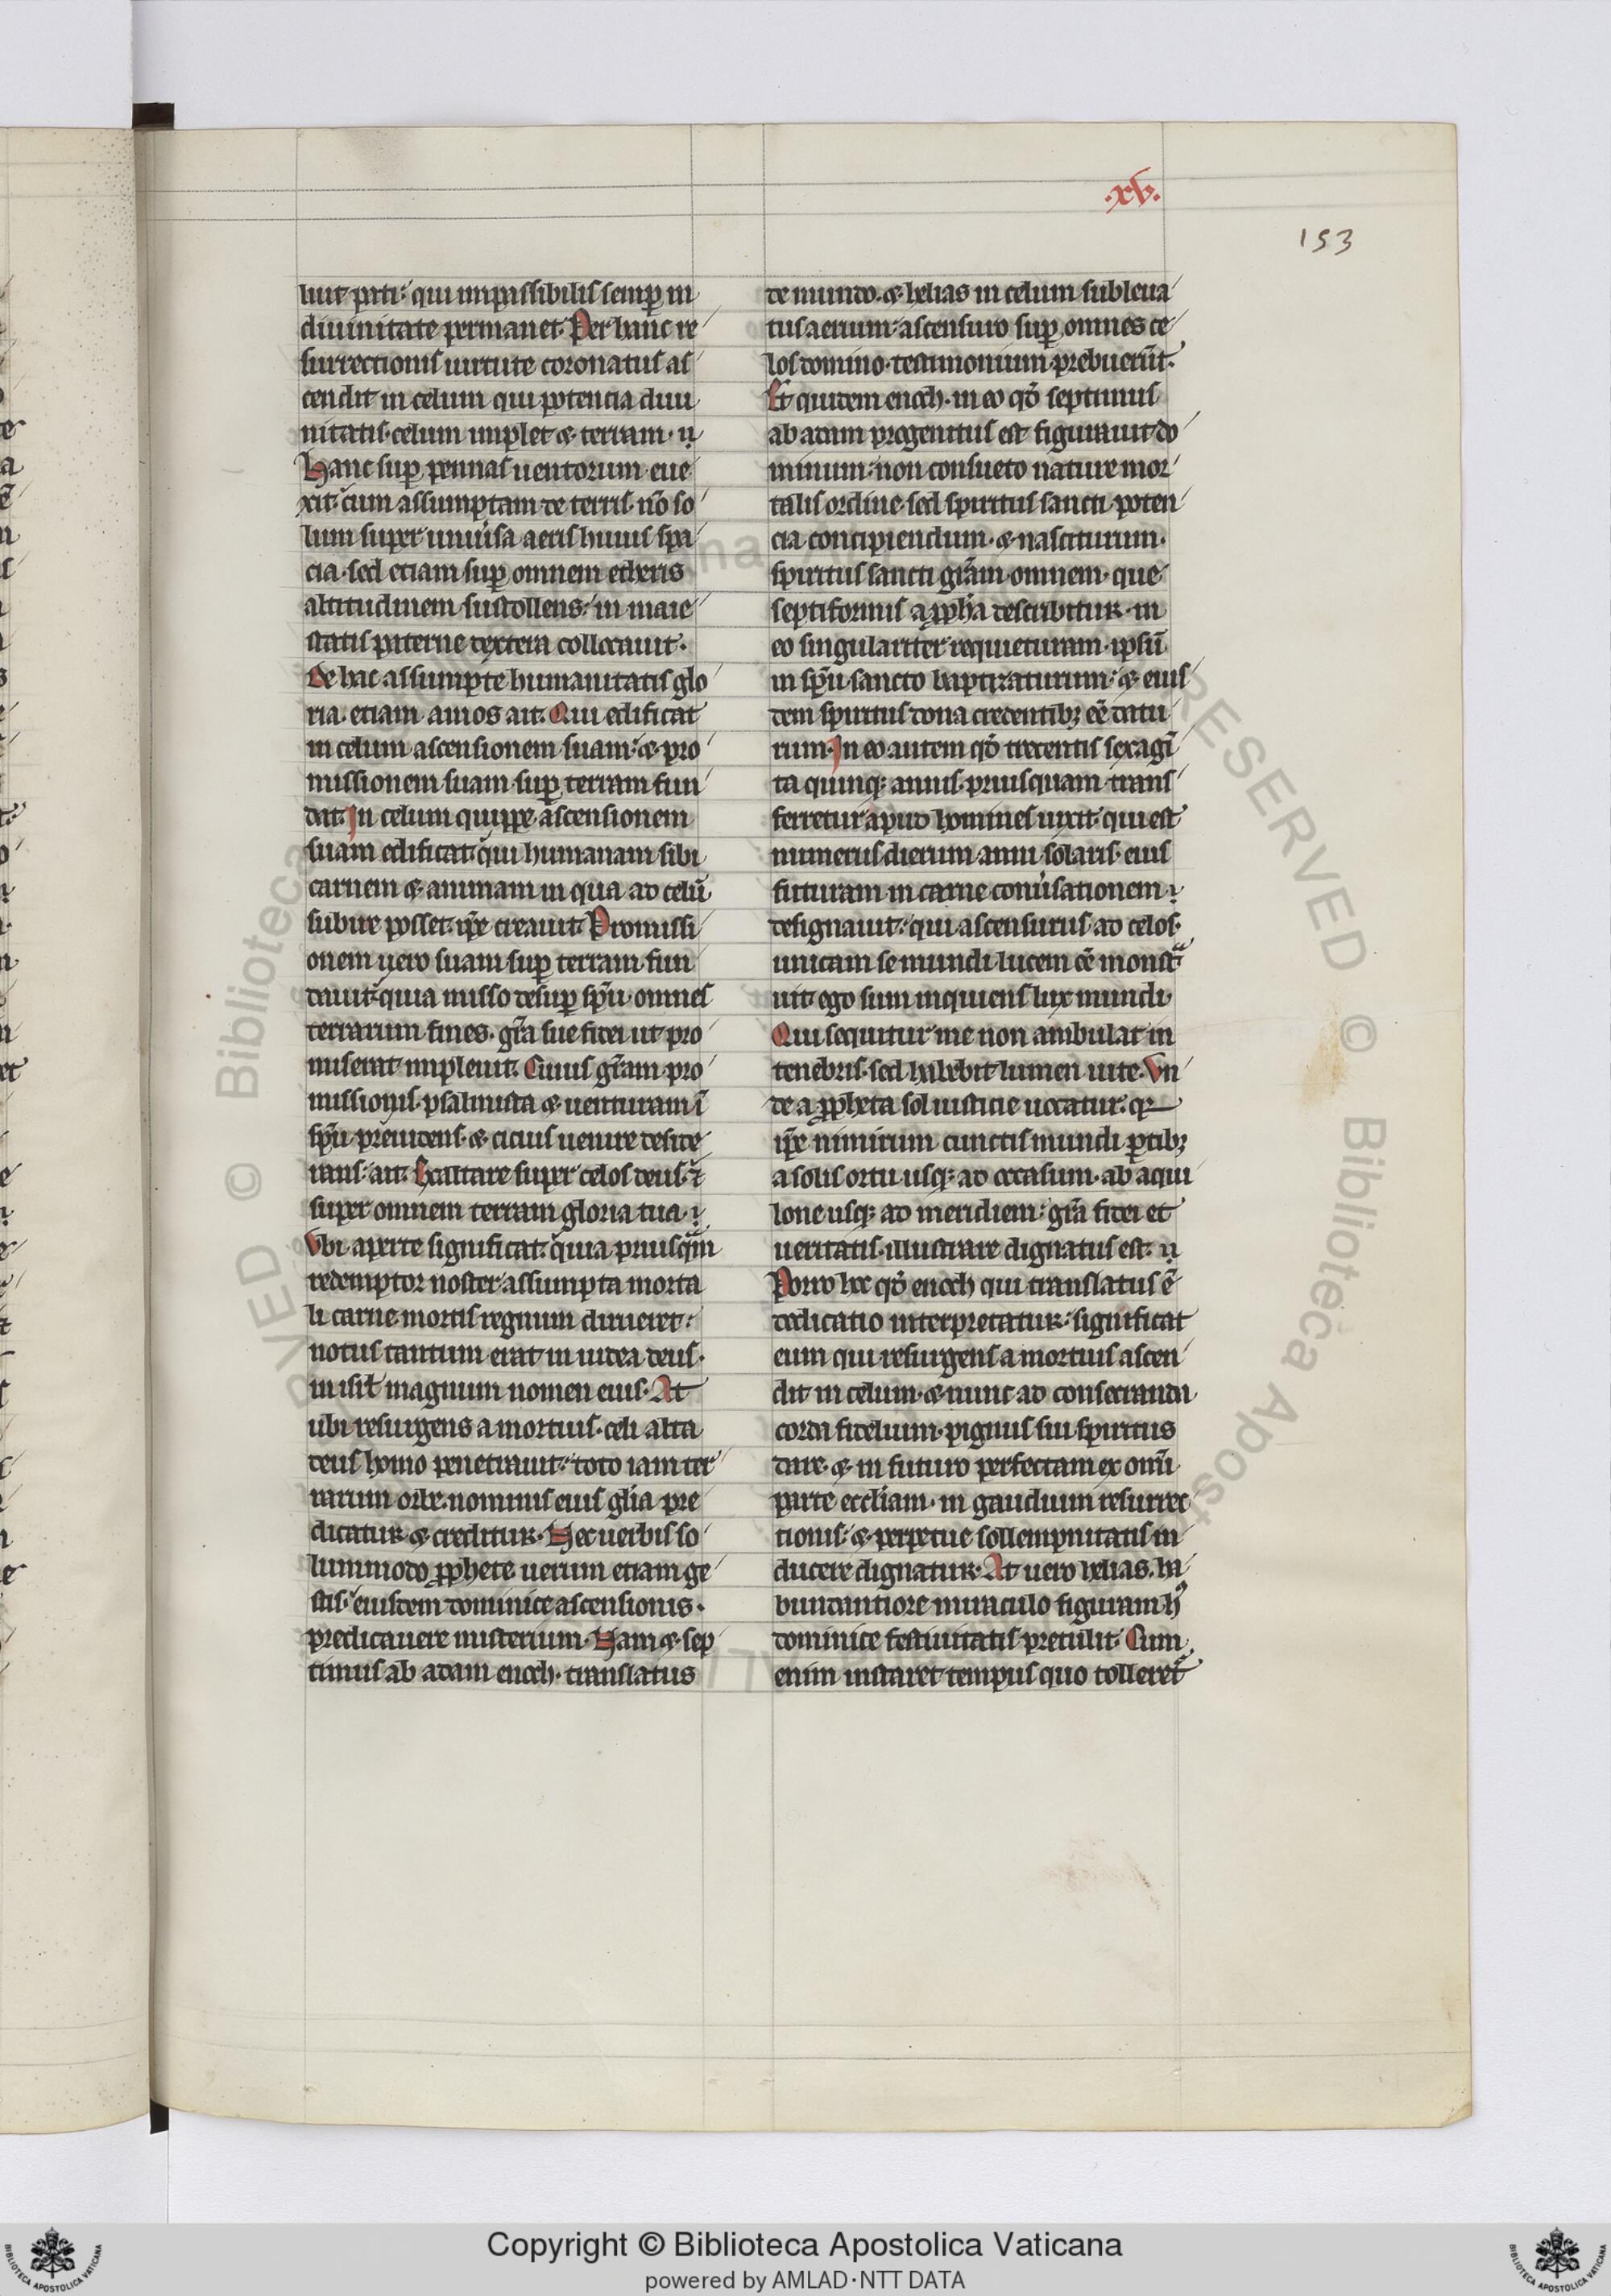 .xv.
153
luit pati: qui impassibilis semp̱ in
diuinitate permanet. Per hanc re
surrectionis uirtute coronatus as
cendit in celum qui potencia diui
nitatis celum implet & terram.
Hanc sup̱ pennas uentorum eue
xit: cum assumptam de terris. nō so
lum super uniu̾sa aeris huius spa
cia. sed etiam sup̱ omnem etheris
altitudinem sustollens: in maie
statis paterne dextera collocauit.
De hac assumpte humanitatis glo
ria. etiam amos ait. Qui edificat
in celum ascensionem suam: & pro
missionem suam sup̱ terram fun
dat. In celum quippe ascensionem
suam edificat: qui humanam sibi
carnem & animam in qua ad celū
subire posset. ip̄e creauit. Promissi
onem uero suam sup̱ terram fun
dauit: quia misso desup̱ sp̄u. omnes
terrarum fines. gr̄a sue fidei ut pro
miserat impleuit. Cuius gr̄am pro
missionis. psalmista & uenturam ī
sp̄u preuidens. & cicius uenire deside
rans: ait. Exaltare super celos deus. ⁊
super omnem terram gloria tua.
Vbi aperte significat: quia priusqᵃm
redemptor noster assumpta morta
li carne. mortis regnum dirueret:
notus tantum erat in iudea deus.
in isr̄l magnum nomen eius. At
ubi resurgens a mortuis. celi alta
deus homo penetrauit: toto iam ter
rarum orbe. nominis eius gl̄ia pre
dicatur & creditur. Nec uerbis so
lummodo p̱phete uerum etiam ge
stis: eiusdem dominice ascensionis.
predicauere misterium. Nam & sep
timus ab adam enoch. translatus
de mundo. & helias in celum subleua
tus aerium: ascensuro sup̱ omnes ce
los domino. testimonium prebuerūt.
Et quidem enoch. in eo qd̾ septimus
ab adam progenitus est figurauit do
minum: non consueto nature mor
talis ordine. sed spiritus sancti poten
cia concipiendum. & nasciturum.
spiritus sancti gr̄am omnem. que
septiformis a p̱ph̄a describitur. in
eo singulariter requieturam. ipsū
in sp̄u sancto baptizaturum: & eius
dem spiritus dona credentibꝫ eē datu
rum. In eo autem qd̾ trecentis sexagī
ta quinqꝫ annis. priusquam trans
ferretur apud homines uixit qui est
numerus dierum anni solaris. eius
futuram in carne conu̾sationem
designauit: qui ascensurus ad celos.
unicam se mundi lucem eē monstᵃ
uit. ego sum inquiens lux mundi.
Qui sequitur me non ambulat in
tenebris. sed habebit lumen uite. Vn
de a p̱pheta sol iusticie uocatur: qꝛ
ip̄e nimirum cunctis mundi p̱tibꝫ
a solis ortu usqꝫ ad occasum. ab aqui
lone usqꝫ ad meridiem: gr̄a fidei et
ueritatis. illustrare dignatus est.
Porro hoc qd̾ enoch qui translatus ē
dedicatio interpretatur: significat
eum qui resurgens a mortuis ascen
dit in celum. & nunc ad consecranda
corda fidelium. pignus sui spiritus
dare. & in futuro perfectam ex om̄i
parte eccl̄iam. in gaudium resurrec
tionis: & perpetue sollempnitatis in
ducere dignatur. At uero helias. ha
bundantiore miraculo figuram hᵒ
dominice festiuitatis pretulit. Cum
enim instaret tempus quo tolleretᷓ
Copyright © Biblioteca Apostolica Vaticana
powered by AMLAD·NTT DATA